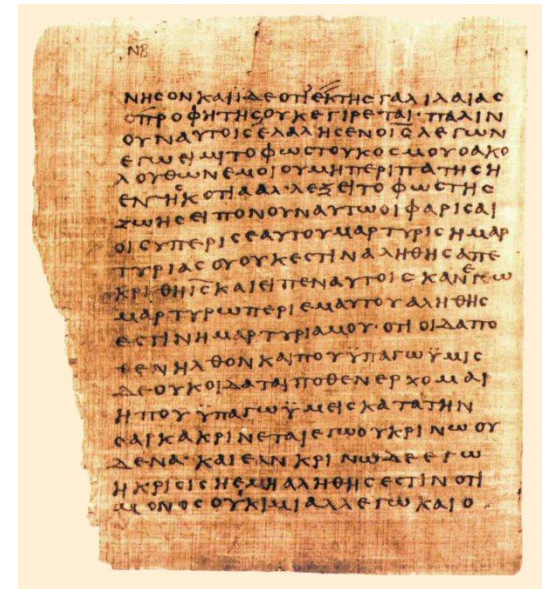 ΝΒ
ΝΗϹΟΝΚΑΙΪΔΕΟΤΙΕΚΤΗϹΓΑΛΙΛΑΙΑϹ
ΟΠΡΟΦΗΤΗϹΟΥΚΕΓΙΡΕΤΑΙ·ΠΑΛΙΝ
ΟΥΝΑΥΤΟΙϹΕΛΑΛΗϹΕΝΟΙϹΛΕΓΩΝ
ΕΓΩΕΙΜΙΤΟΦΩϹΤΟΥΚΟϹΜΟΥΟΑΚΟ
ΛΟΥΘΩΝΕΜΟΙΟΥΜΗΠΕΡΙΠΑΤΗϹΗ
ΕΝΤΗϹΚΟΤΙΑΑΛ·ΛΕΞΕΙΤΟΦΩϹΤΗϹ
ΖΩΗϹΕΙΠΟΝΟΥΝΑΥΤΩΟΙΦΑΡΙϹΑΙ
ΟΙϹΥΠΕΡΙϹΕΑΥΤΟΥΜΑΡΤΥΡΙϹΗΜΑΡ
ΤΥΡΙΑϹΟΥΟΥΚΕϹΤΙΝΑΛΗΘΗϹΑΠΕ
ΚΡΙΘΗΙϹΚΑΙΕΙΠΕΝΑΥΤΟΙϹΚΑΝΕΓΩ
ΜΑΡΤΥΡΩΠΕΡΙΕΜΑΥΤΟΥΑΛΗΘΗϹ
ΕϹΤΙΝΗΜΑΡΤΥΡΙΑΜΟΥ·ΟΤΙΟΙΔΑΠΟ
ΘΕΝΗΛΘΟΝΚΑΙΠΟΥΫΠΑΓΩΫΜΙϹ
ΔΕΟΥΚΟΙΔΑΤΑΙΠΟΘΕΝΕΡΧΟΜΑΙ
ΗΠΟΥΫΠΑΓΩΫΜΕΙϹΚΑΤΑΤΗΝ
ϹΑΙΚΑΚΡΙΝΕΤΑΙΕΓΩΟΥΚΡΙΝΩΟΥ
ΔΕΝΑ·ΚΑΙΕΑΝΚΡΙΝΩΔΕΕΓΩ
ΗΚΡΙϹΙϹΗΕΜΗΑΛΗΘΗϹΕϹΤΙΝΟΤΙ
ΜΟΝΟϹΟΥΚΙΜΙΑΛΛΕΓΩΚΑΙΟ